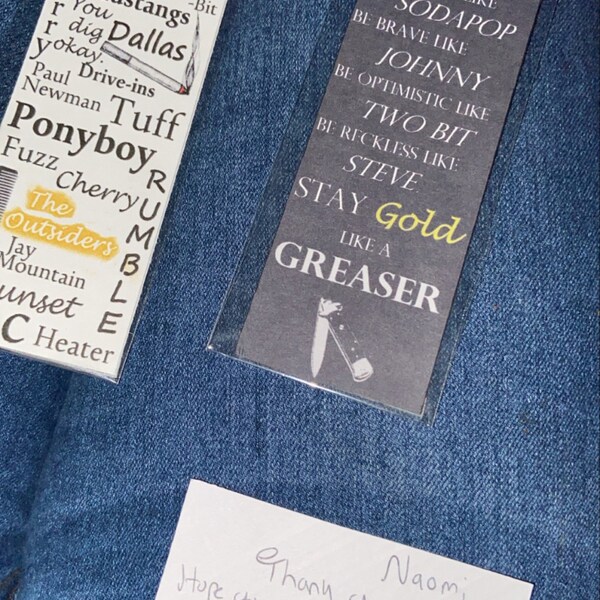 -Bit
Mustangs
You
dig
okay.
Dallas
Paul
Newman
Drive-ins
Tuff
Ponyboy
Fuzz
Cherry
RUMBLE
The
Outsiders
Jay
Mountain
Heater
LIKE
SODAPOP
BE BRAVE LIKE
JOHNNY
BE OPTIMISTIC LIKE
TWO BIT
BE RECKLESS LIKE
STEVE
STAY Gold
LIKE A
GREASER
Naomi
Thank
Hope